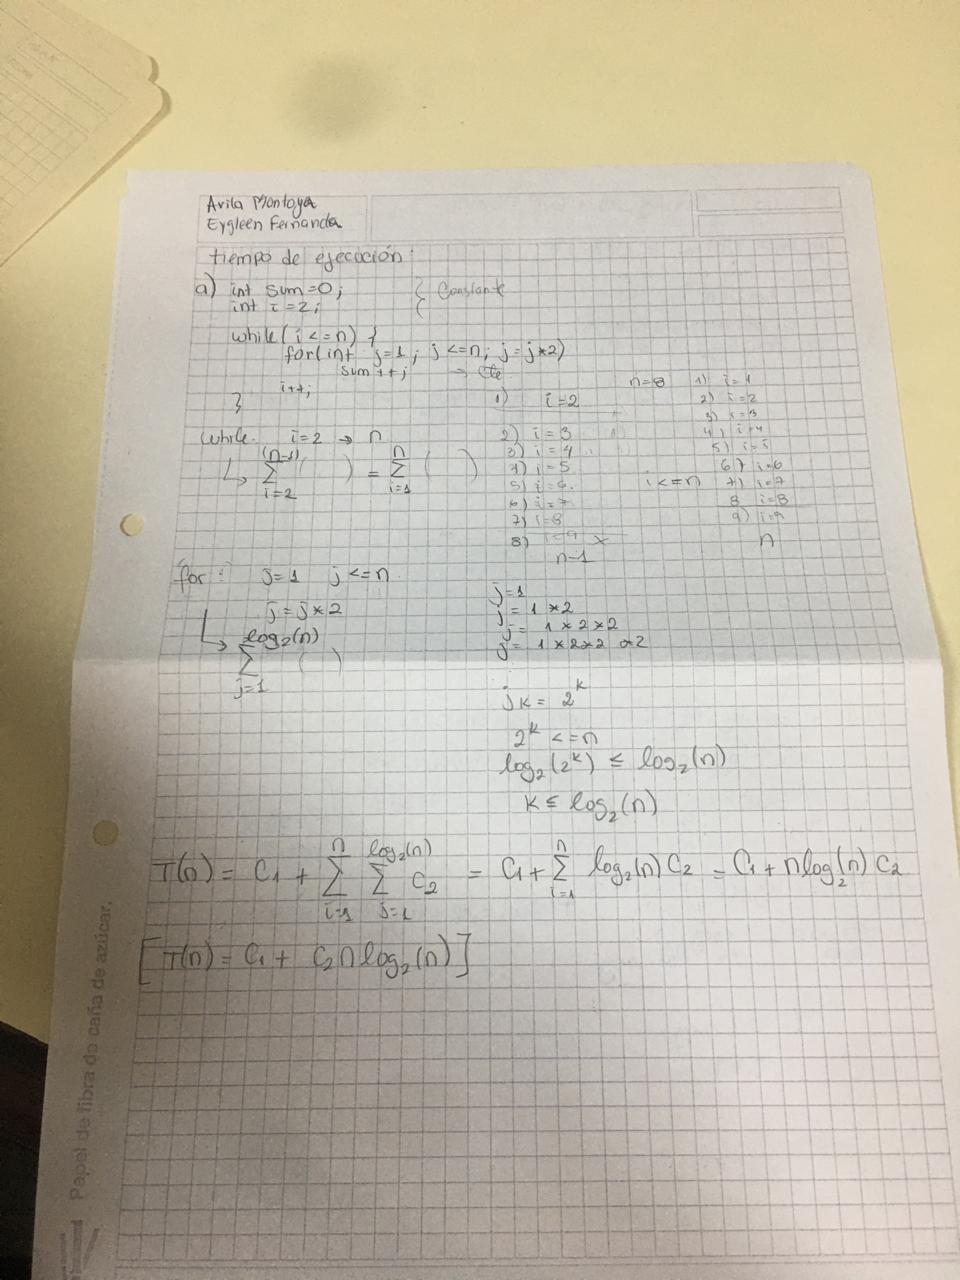 Avila Montoya
Eygleen Fernanda
tiempo de ejecución:
a) int sum=0; { Constante
int i=2;
while(i<=n) {
for(int j=1; j<=n; j=j*2)
sum++; → cte
i++;
}
while. i=2 → n
(n-1) n
↳ Σ ( ) = Σ ( )
i=2 i=1
1) i=2
2) i=3
3) i=4
4) i=5
5) i=6
6) i=7
7) i=8
8) i=9 x
n-1
n=8
1) i=1
2) i=2
3) i=3
4) i=4
5) i=5
6) i=6
i<=n 7) i=7
8 i=8
9) i=9
n
for: j=1 j<=n
j=j*2
log₂(n)
↳ Σ ( )
j=1
j=1
j= 1*2
j= 1*2*2
j= 1*2*2*2
jk = 2^k
2^k <=n
log₂(2^k) ≤ log₂(n)
k ≤ log₂(n)
n log₂(n) n
T(n) = C₁ + Σ Σ C₂ = C₁ + Σ log₂(n) C₂ = C₁ + n log₂(n) C₂
i=1 j=1 i=1
[T(n) = C₁ + C₂ n log₂(n)]
Papel de fibra de caña de azúcar.